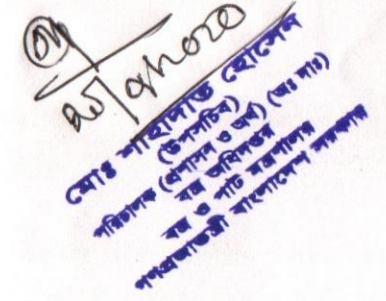 মোঃ শাহাদাত হোসেন
(উপসচিব)
পরিচালক (প্রশাসন ও অর্থ) (অঃ দাঃ)
বস্ত্র অধিদপ্তর
বস্ত্র ও পাট মন্ত্রণালয়
গণপ্রজাতন্ত্রী বাংলাদেশ সরকার